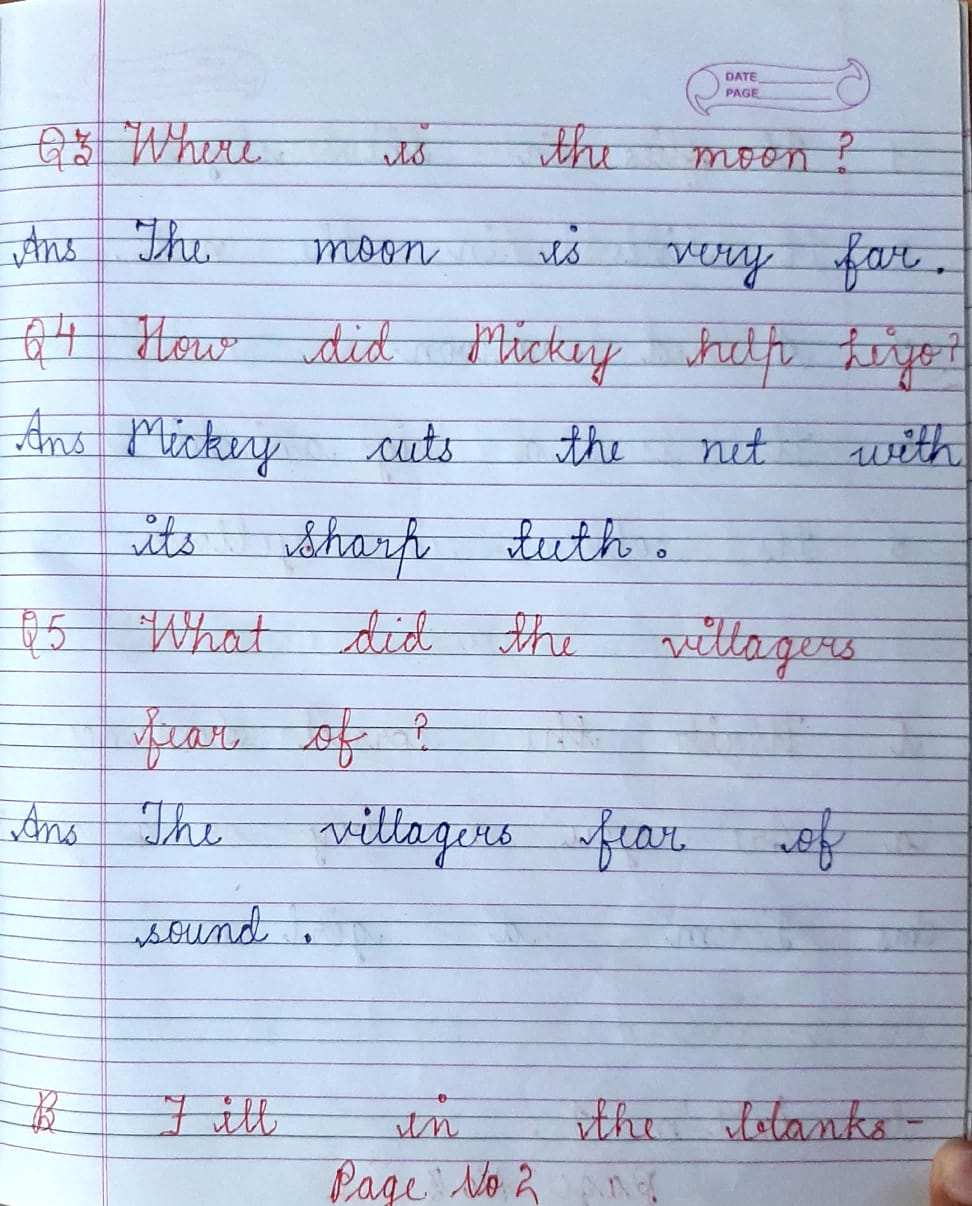 DATE
PAGE
Q3 Where is the moon?
Ans The moon is very far.
Q4 How did Mickey help Liyo?
Ans Mickey cuts the net with
its sharp teeth.
Q5 What did the villagers
fear of?
Ans The villagers fear of
sound.
B Fill in the blanks-
Page No 2